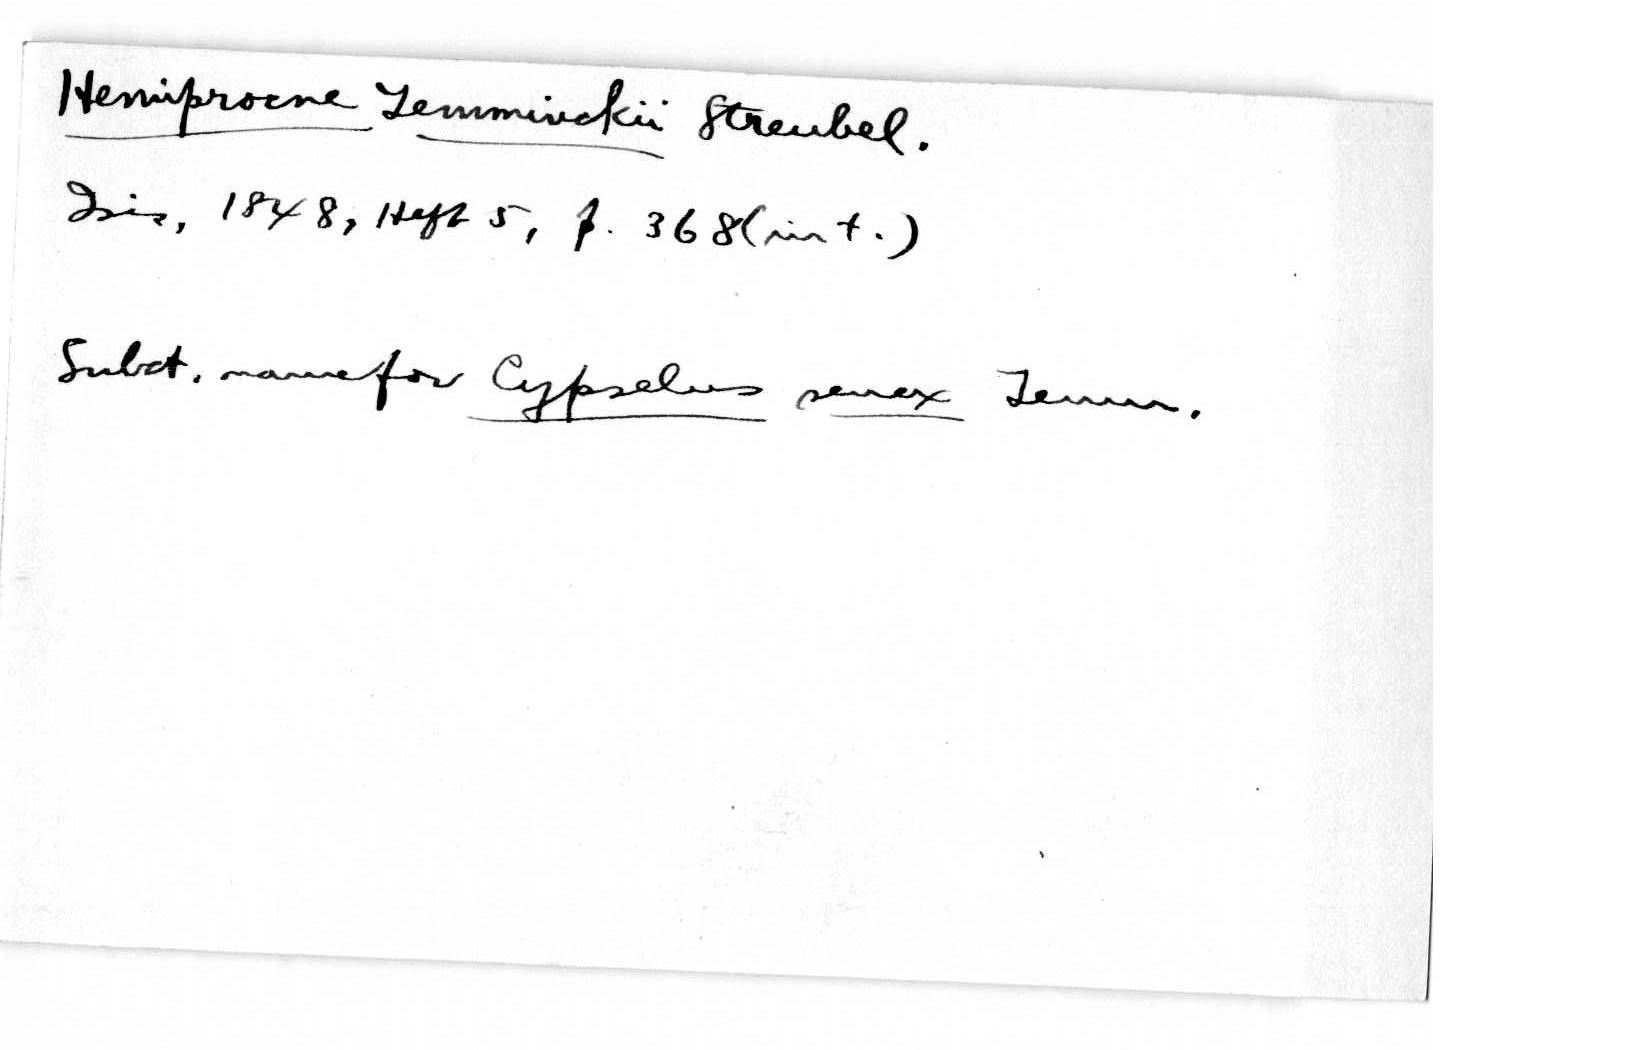 Hemiprocne Temminckii Streubel.
Isis, 1848, Heft 5, p. 368 (in t.)
Subst. name for Cypselus senex Temm.